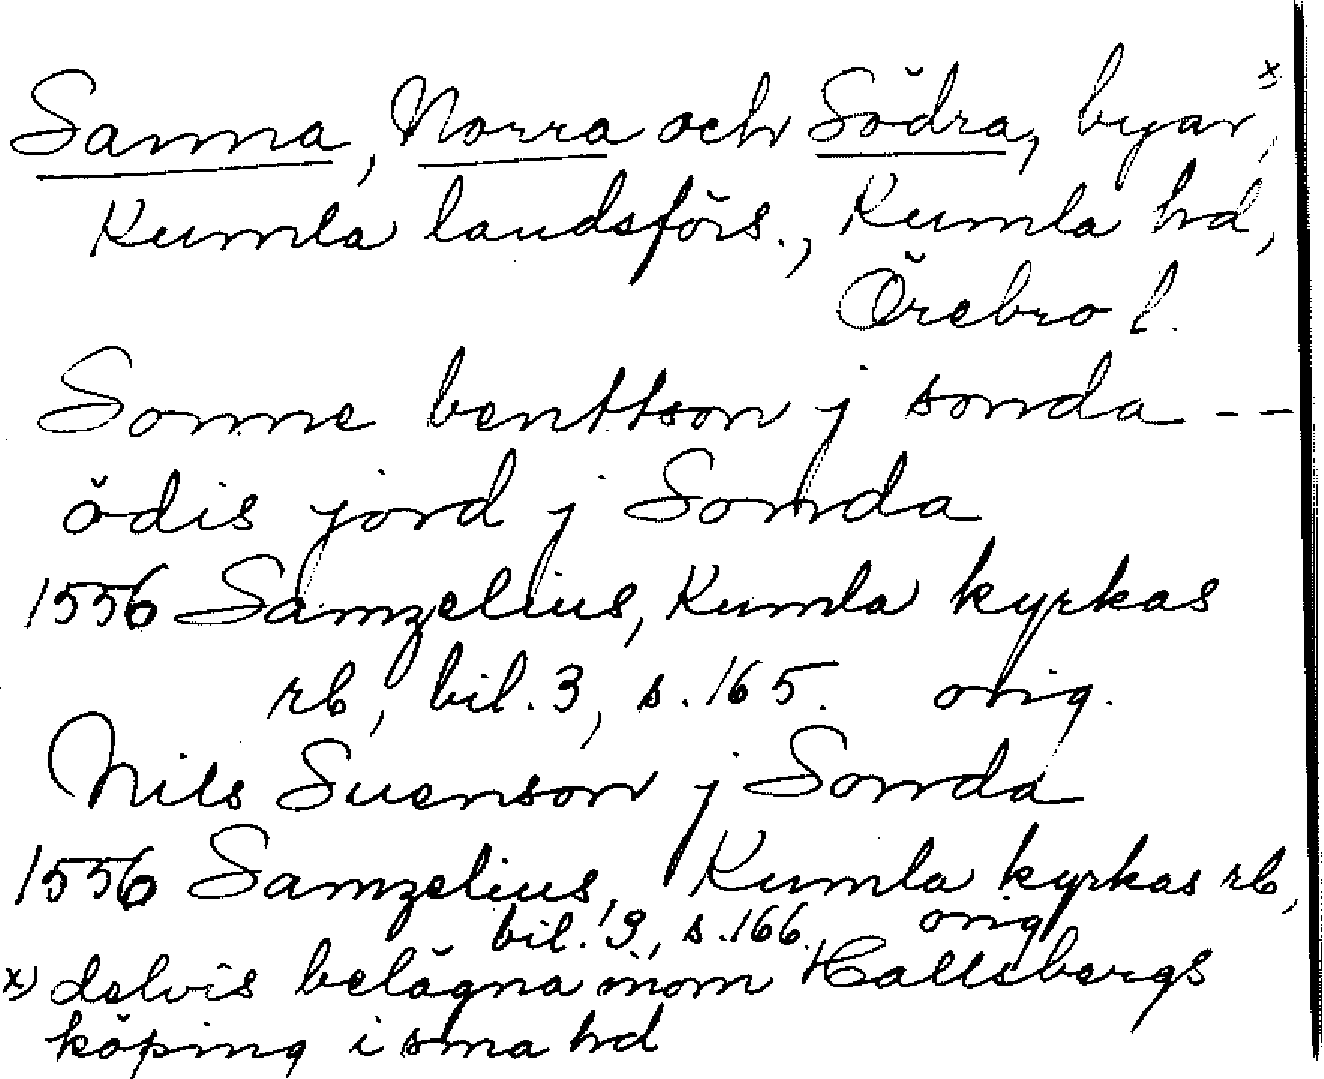 Sanna, Norra och Södra, byar x),
Kumla landsförs., Kumla hd,
Örebro l.
Sonne benttson j sonda --
ödis jord j Sonda
1556 Samzelius, Kumla kyrkas
rb, bil. 3, s. 165. orig.
Nils Suenson j Sonda
1556 Samzelius, Kumla kyrkas rb,
bil. 3, s. 166. orig
x) delvis belägna inom Hallsbergs
köping i sma hd